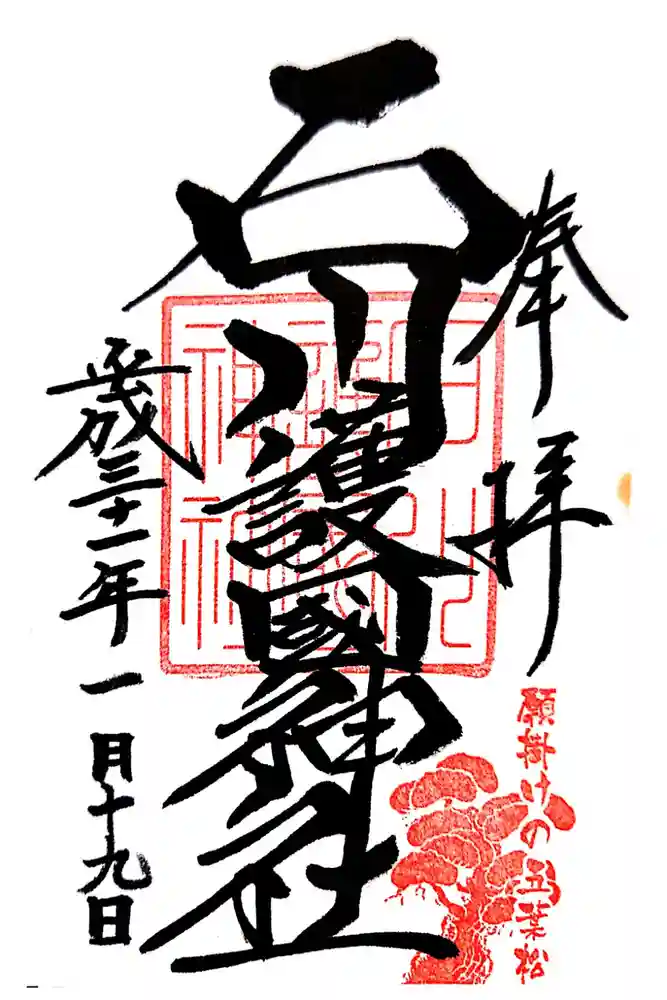 奉拝
願掛けの五葉松
石川護國神社
平成三十一年一月十九日